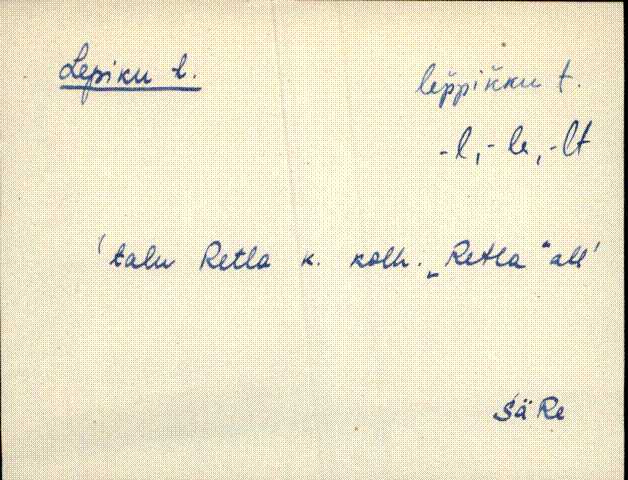 Lepiku t.
lep̆pik̆ku t.
-l, -le, -lt
'talu Retla k. kolh. „Retla" all'
SäRe